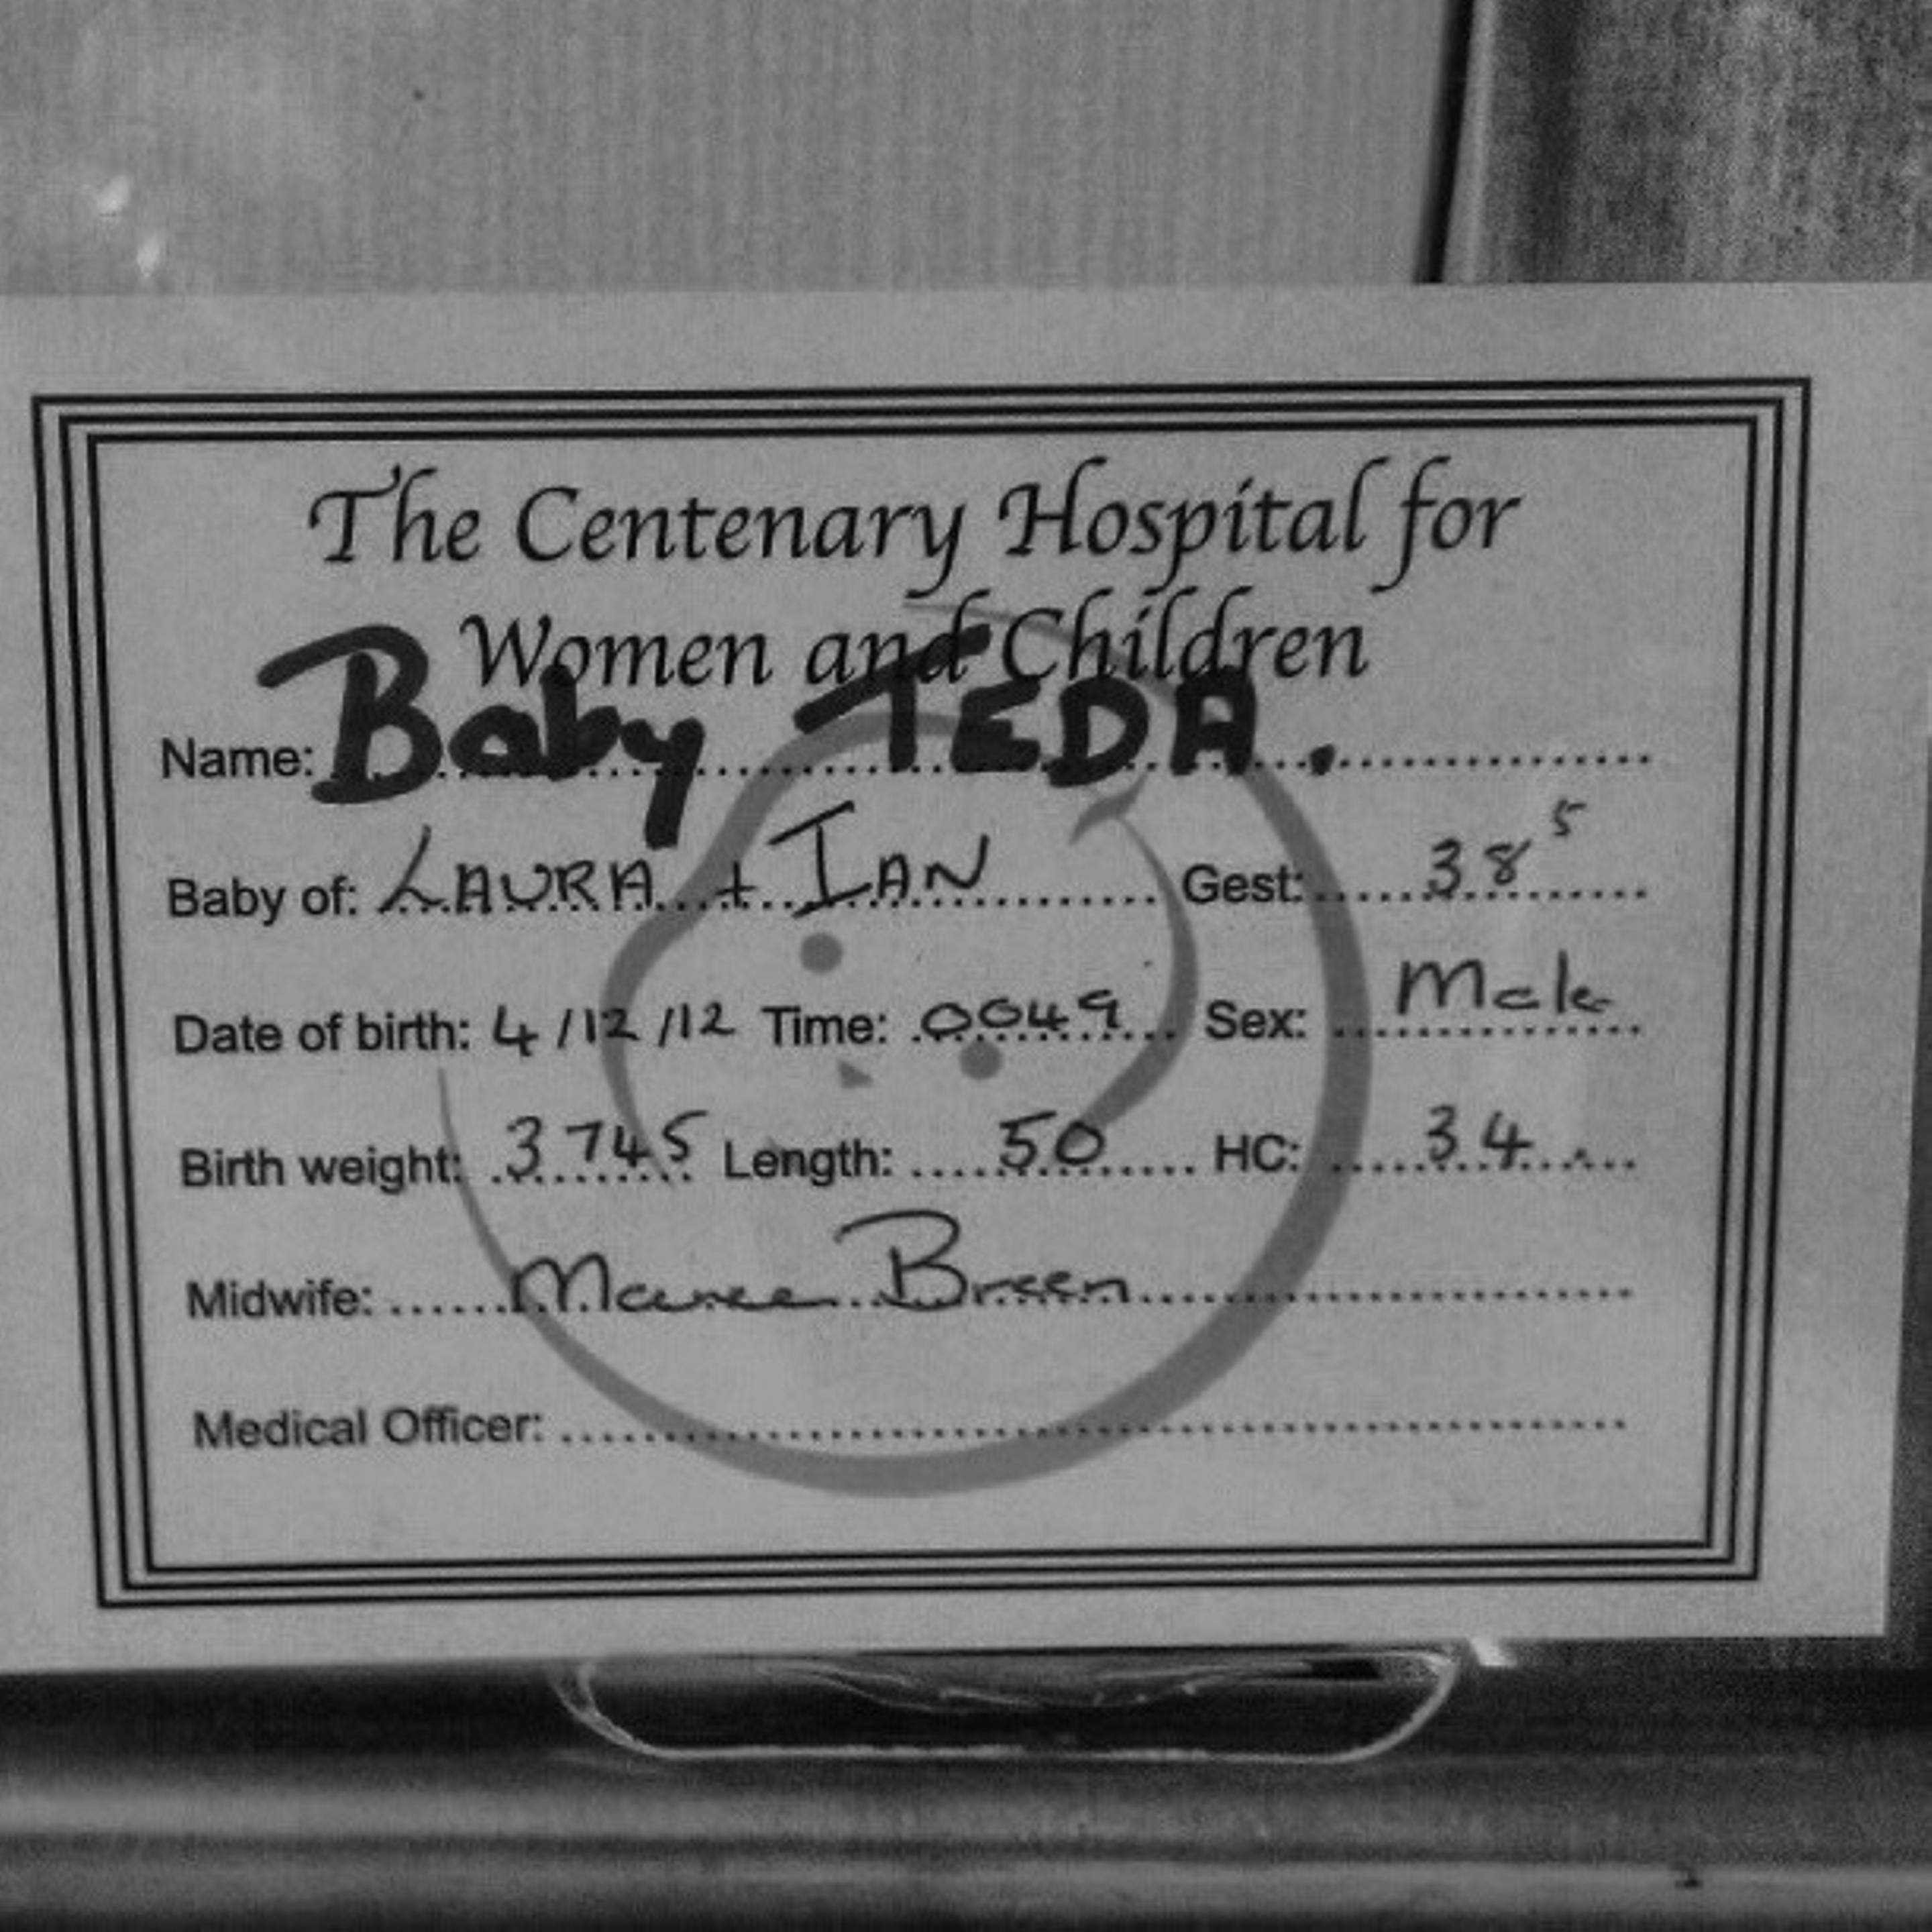 The Centenary Hospital for
Women and Children
Name: Baby TEDA.
Baby of: LAURA + IAN Gest: 38⁵
Date of birth: 4/12/12 Time: 0049 Sex: Male
Birth weight: 3745 Length: 50 HC: 34
Midwife: Maree Breen
Medical Officer: